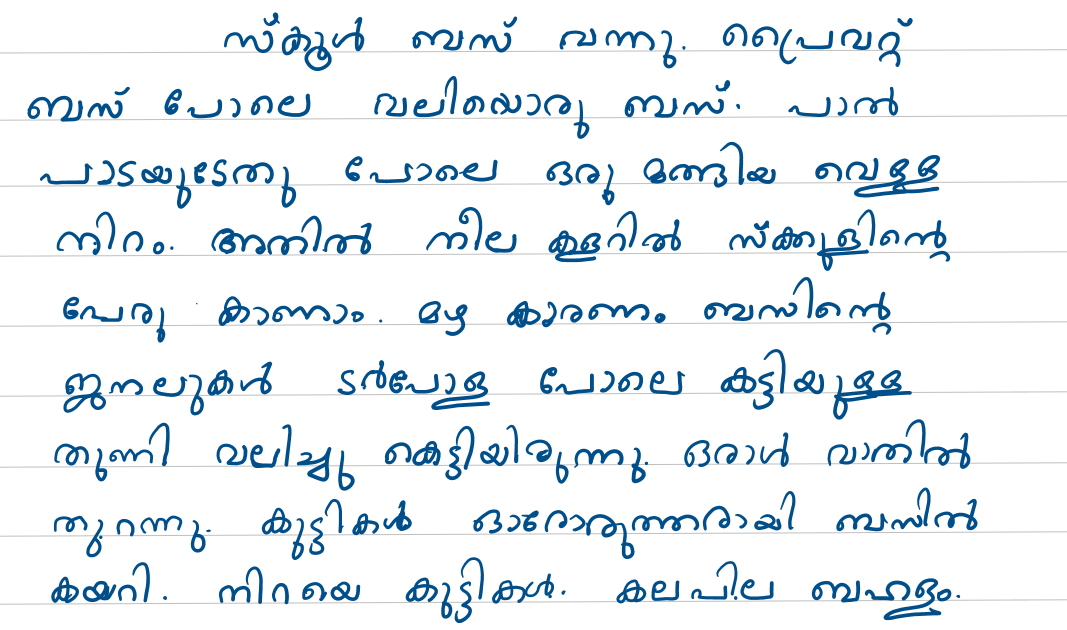 സ്കൂൾ ബസ് വന്നു. പ്രൈവറ്റ്
ബസ് പോലെ വലിയൊരു ബസ്. പാൽ
പാടയുടേതു പോലെ ഒരു മങ്ങിയ വെള്ള
നിറം. അതിൽ നീല കളറിൽ സ്ക്കൂളിന്റെ
പേരു കാണാം. മഴ കാരണം ബസിന്റെ
ജനലുകൾ ടർപോള പോലെ കട്ടിയുള്ള
തുണി വലിച്ചു കെട്ടിയിരുന്നു. ഒരാൾ വാതിൽ
തുറന്നു. കുട്ടികൾ ഓരോരുത്തരായി ബസിൽ
കയറി. നിറയെ കുട്ടികൾ. കലപില ബഹളം.